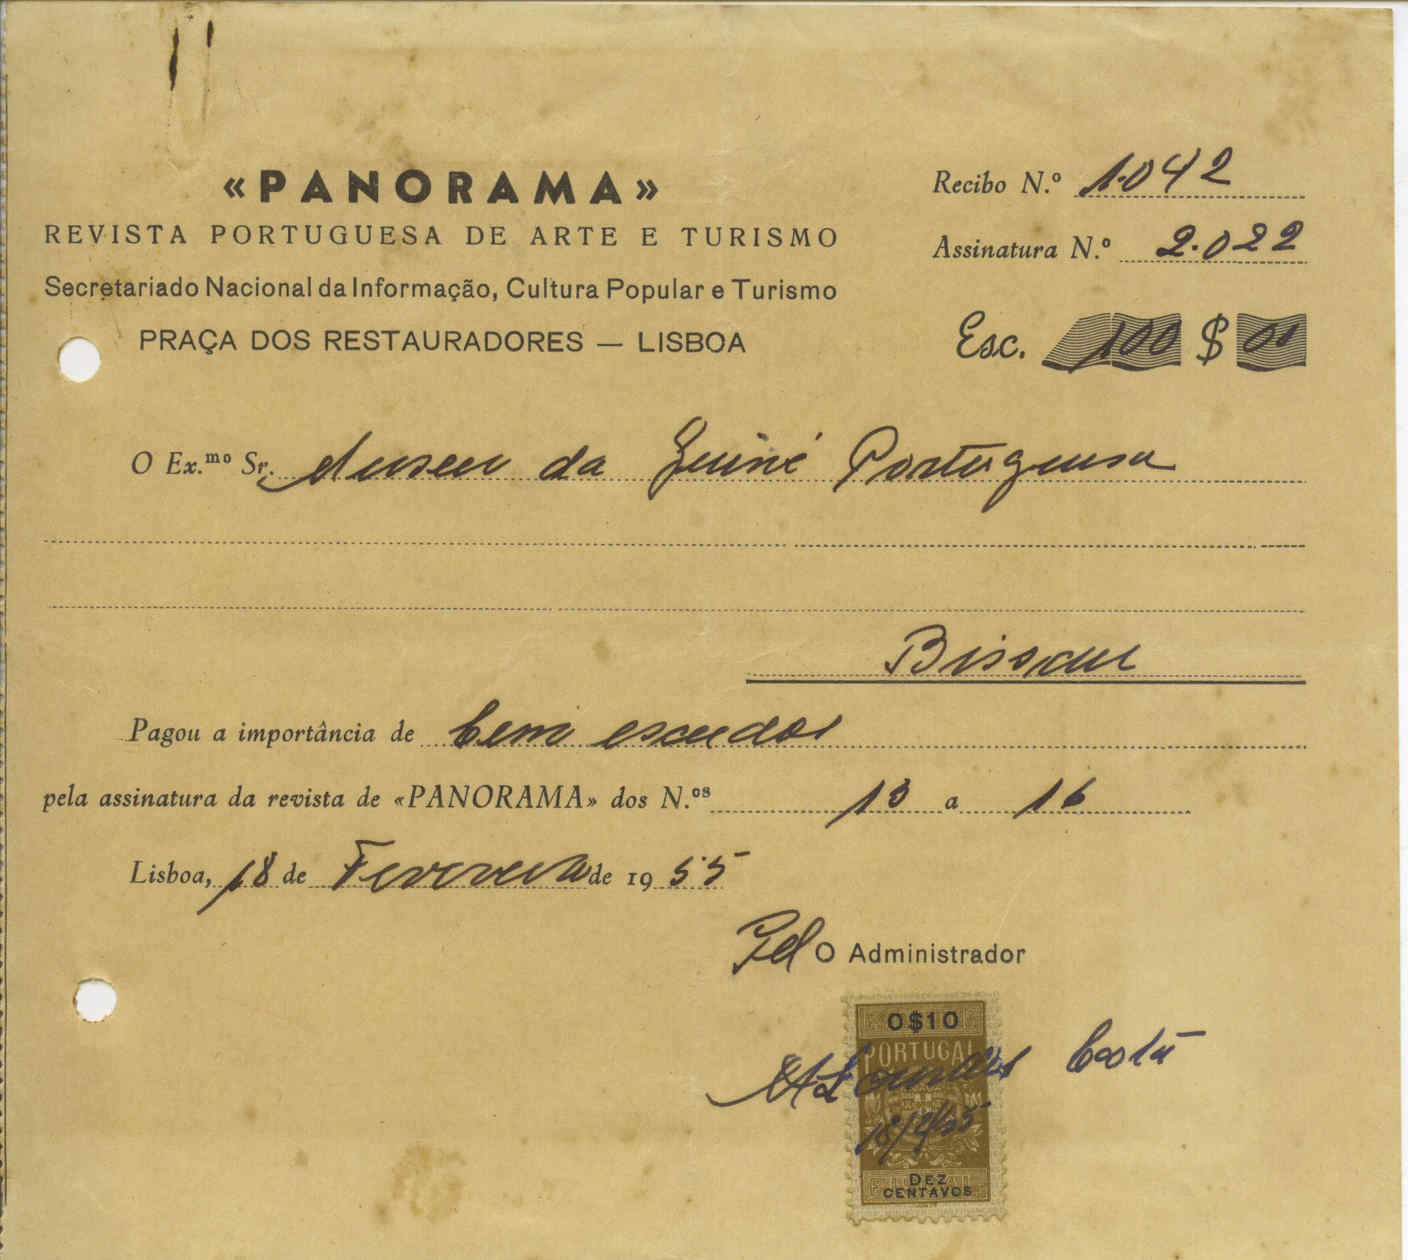 «PANORAMA»
REVISTA PORTUGUESA DE ARTE E TURISMO
Secretariado Nacional da Informação, Cultura Popular e Turismo
PRAÇA DOS RESTAURADORES — LISBOA
Recibo N.º 1.042
Assinatura N.º 2.022
Esc. 100 $ 00
O Ex.mo Sr. Museu da Guiné Portuguesa
Bissau
Pagou a importância de Cem escudos
pela assinatura da revista de «PANORAMA» dos N.os 13 a 16
Lisboa, 18 de Fevereiro de 1955
Pel O Administrador
0$10
PORTUGAL
M Lourdes Costa
18/2/55
DEZ
CENTAVOS